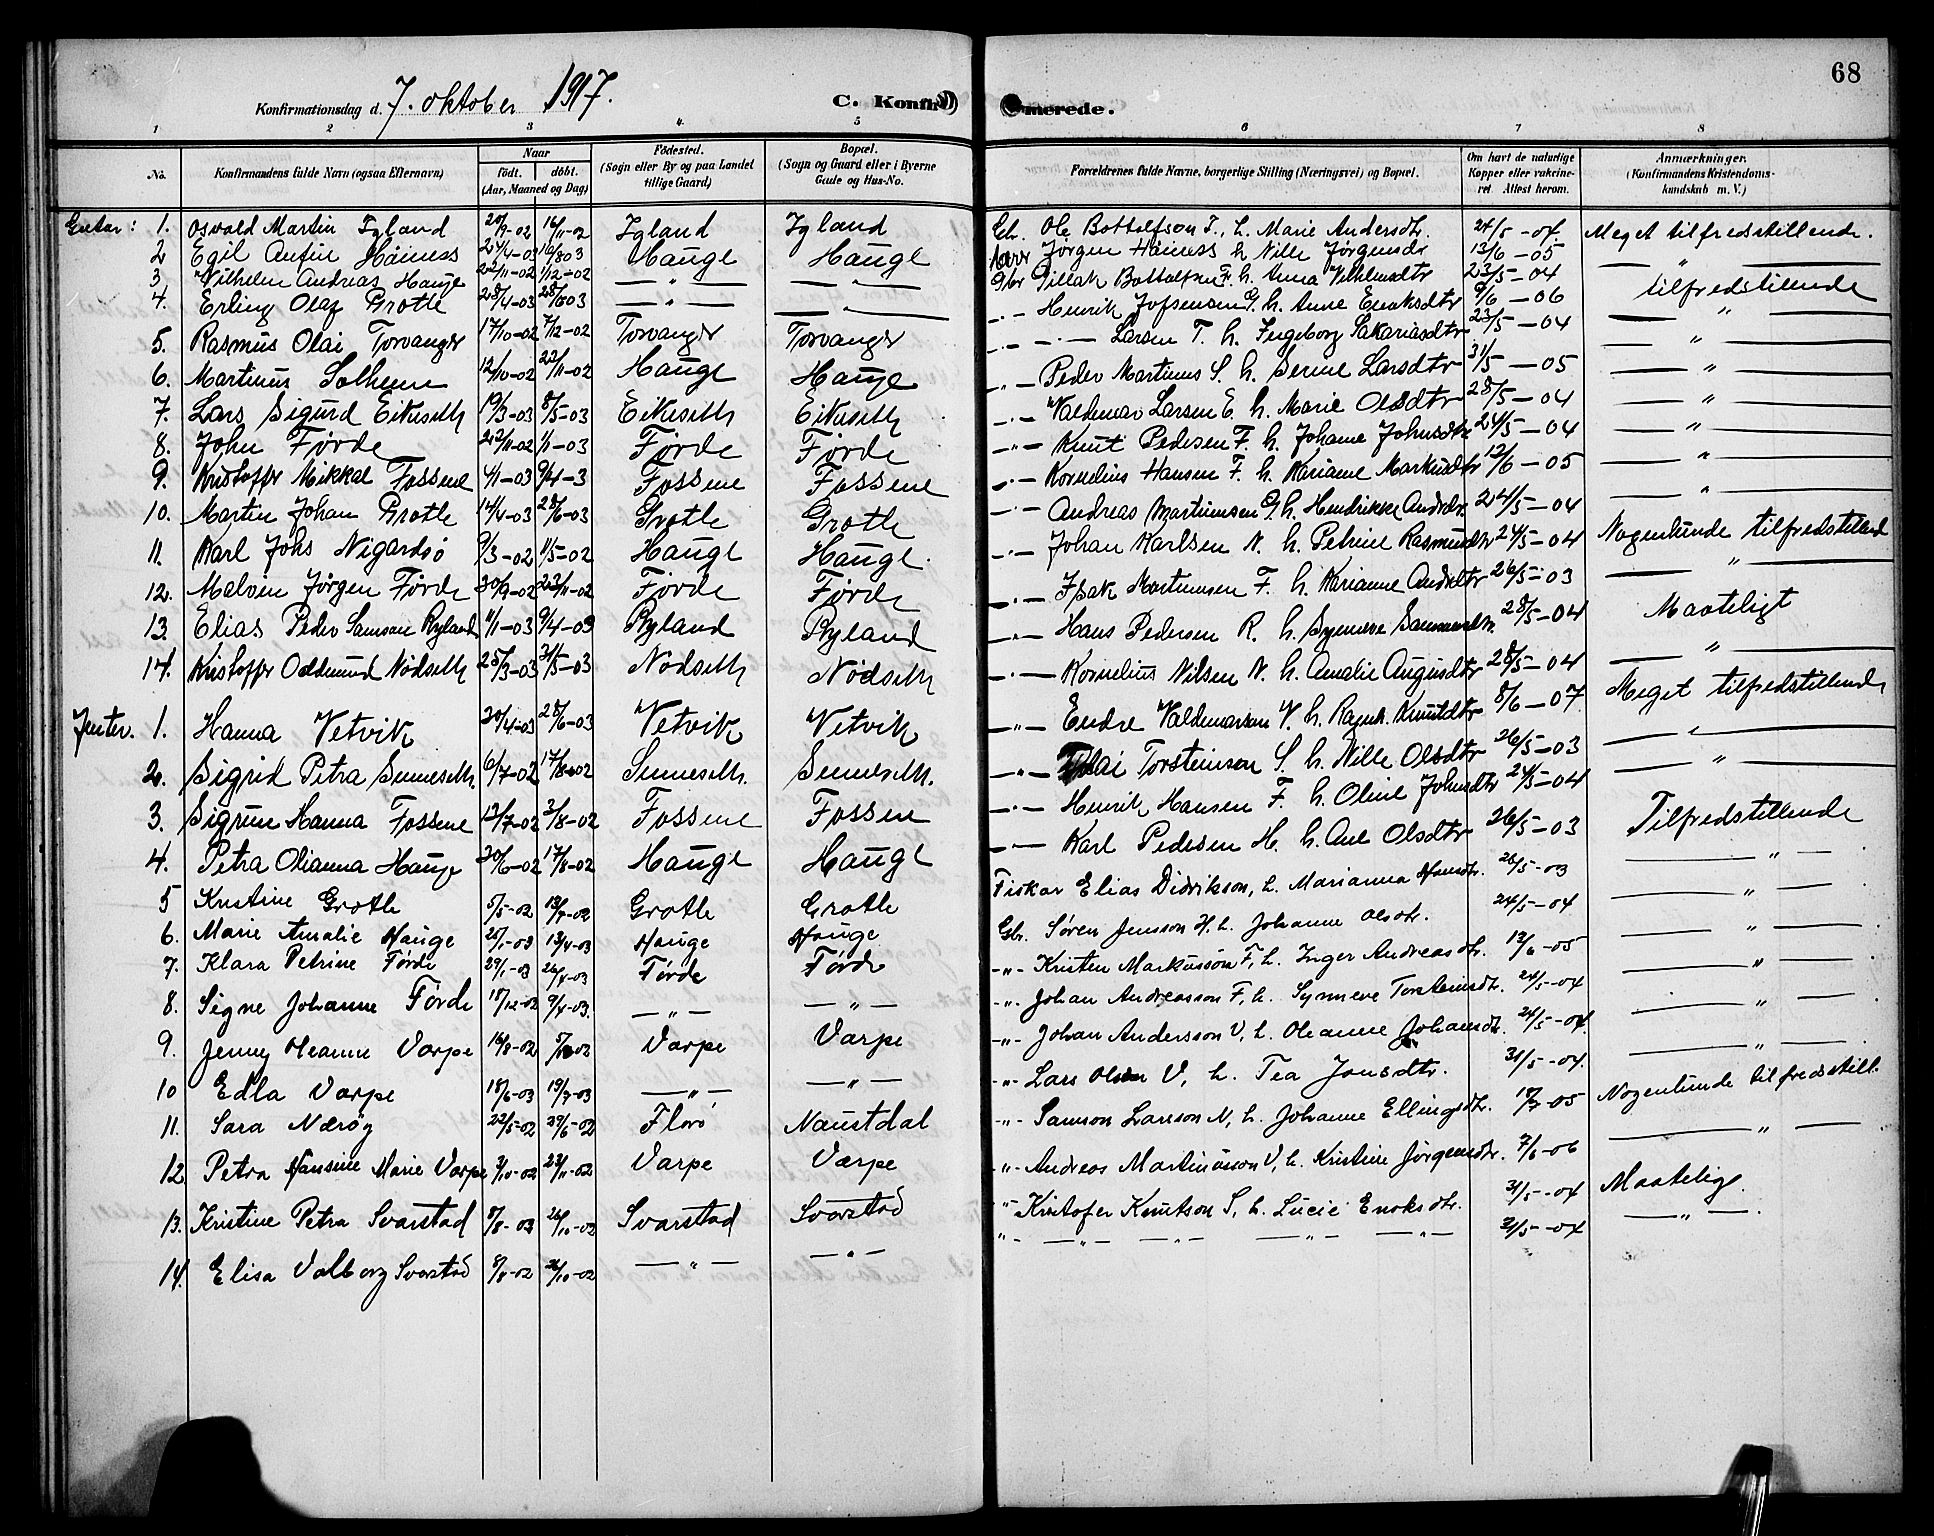 68
Konfirmationsdag d. 7. oktober 1917. C. Konfir merede.
1 2 3 4. 5 6 7 8
No. Konfirmandens fulde Navn (ogsaa Efternavn) Naar födt. döbt. (Aar, Maaned og Dag) Födested. (Sogn eller By og paa Landet tillige Gaard) Bopæl. (Sogn og Gaard eller i Byerne Gade og Hus-No. Forældrenes fulde Navne, borgerlige Stilling (Næringsvei) og Bopæl. Om havt de naturlige Kopper eller vakcineret. Attest herom. Anmærkninger. (Konfirmandens Kristendomskundskab m. V.)
1. Osvald Martin Igland 20/9-02 16/11-02 Igland Igland Gbr. Ole Bottolfson I., h. Marie Andersdtr. 24/5-04 Meget tilfredstillende.
2 Egil Anfin Håness 24/4-03 16/803 Hauge Hauge Jørgen Håness h. Nille Jørgensdr 13/6-05 — " —
3 Vilhelm Andreas Hauge 22/11-02 1/12-02 — " — — " — Gbr Pillak Bottolfsen F. h. Anna Vilhelmsdtr 23/5-04 tilfredstillende
4. Erling Olaf Grotle 28/4-03 28/603 — " — — " — Henrik h. Anne Enoksdtr 9/6-06 — " —
5. Rasmus Olai Torvanger 17/10-02 7/12-02 Torvanger Torvanger -"- — " — Larsen T. h. Ingeborg Sakariasdtr 23/5-04 — " —
6. Martinus Solheim 12/10-02 23/11-02 Hauge Hauge -"- Peder Martinus S. h. Serine Larsdtr 31/5-05 — " —
7. Lars Sigurd Eikeseth 19/3-03 8/5-03 Eikeseth Eikeseth -"- Valdemar Larsen E. h. Marie Olsdtr 28/5-04 — " —
8. John Førde 22/11-02 1/1-03 Førde Førde -"- Knut Pedersen F. h. Johane Johnsdtr 24/5-04 — " —
9. Kristoffer Mikkal Fossene 4/1-03 9/4-3 Fossene Fossene -"- Kornelius Hansen F. h. Kariane Markusdtr 12/6-05 — " —
10. Martin Johan Grotle 14/4-03 28/6-03 Grotle Grotle -"- Andreas Martinusen G. h. Hendrikke Andrdtr 24/5-04 — " —
11. Karl Johs Nigardsø 9/3-02 1/5-02 Hauge Hauge. -"- Johan Karlsen N. h. Petrine Rasmusdtr 24/5-04 Nogenlunde tilfredstillend
12. Malvin Jørgen Førde 30/9-02 23/11-02 Førde Førde -"- Isak Martinusen F. h. Karianne Andrdtr 26/5-03 — " —
13. Elias Peder Samson Ryland 11/1-03 9/4-03 Ryland Ryland -"- Hans Pedersen R. h. Synneve Samsonsdtr. 28/5-04 Maateligt
14. Kristoffer Oddmund Nødseth 25/3-03 31/5-03 Nødseth Nødseth -"- Kornelius Nilsen N. h. Amalie Augusdtr 28/5-04 — " —
Jenter. 1. Hanna Vetvik 20/4-03 28/6-03 Vetvik Vetvik -"- Endre Valdemarsen V. h. Ragnh. Knutdtr 8/6-07 Meget tilfredstillende
2. Sigrid Petra Sunneseth. 6/7-02 17/8-02 Sunneseth. Sunneseth. -"- Torsteinson S. h. Nille Olsdtr 26/5-03 — " —
3. Sigrune Hanna Fossene 13/7-02 3/8-02 Fossene Fossen -"- Henrik Hansen F. h. Oline Johnsdtr 24/5-04 — " —
4. Petra Olianna Hauge 20/6-02 17/8-02 Hauge Hauge -"- Karl Pedersen H. h. Ane Olsdtr 26/5-03 Tilfredstillende
5 Kristine Grotle 5/5-02 13/7-02 Grotle Grotle Fiskar Elias Didrikson, h. Marianna Hansdtr. 28/5-03 — " —
6. Marie Amalie Hauge 25/1-03 13/4-03 Hauge Hauge Gbr. Søren Jensson H. h. Johanne Olsdtr. 24/5-04 — " —
7. Klara Petrine Førde 29/1-03 26/4-03 Førde Førde -"- Kristen Markusson F, h. Inger Andreasdtr. 12/6-05 — " —
8. Signe Johanne Førde 18/12-02 9/4-03. — " — — " — -"- Johan Andreasson F, h. Synneve Torsteinsdtr. 24/5-04 — " —
9. Jenny Oleanne Varpe 16/8-02 Varpe Varpe -"- Johan Andersson V, h. Oleanne Johansdtr. 24/5-04. — " —
10 Edla Varpe 18/6-03 19/7-03 — " — — " — -"- Lars Olsen V, h. Tea Jonsdtr. 31/5-04. — " —
11. Sara Nærøy 22/5-02 29/6-02 Florø Naustdal -"- Samson Larsson N, h. Johanne Ellingsdtr. 18/7-05 Nogenlunde tilfredstill.
12 Petra Hansine Marie Varpe 3/10-02 23/11-02 Varpe Varpe -"- Andreas Martinusson V, h. Kristine Jørgensdtr. 7/6-06 — " —
13. Kristine Petra Svarstad 8/8-03 26/10-02 Svarstad Svarstad -"- Kristofer Knutson S, h. Lucie Enoksdtr. 31/5-04 Maatelige.
14. Elisa Valborg Svarstad 8/8-02 26/10-02 — " — — " — -"- — " — — " — — " — — " — 31/5-04 — " —